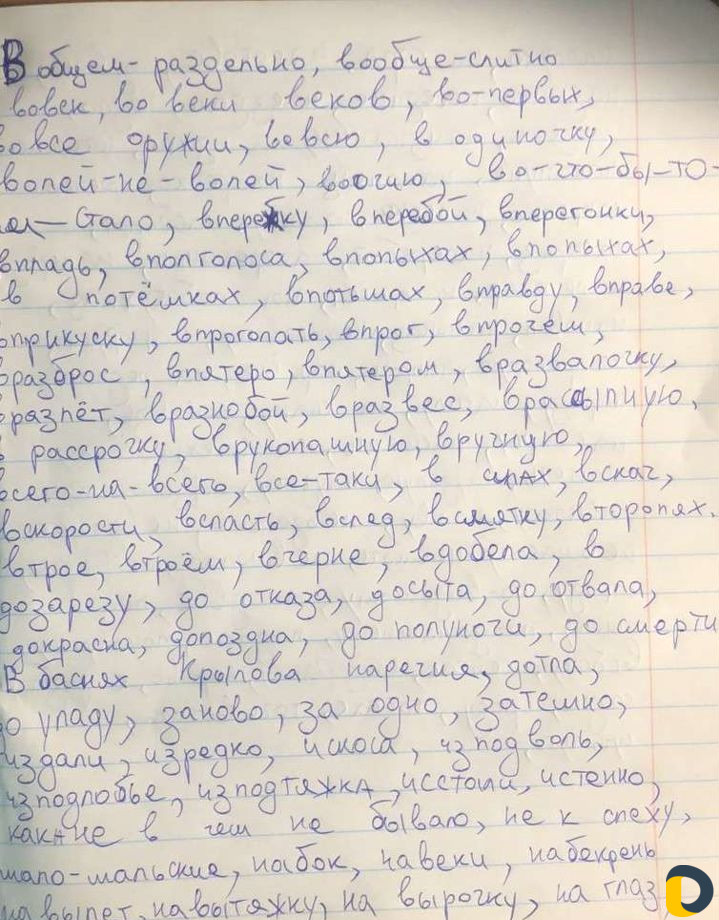 В общем- раздельно, вообще-слитно
вовек, во веки веков, во-первых,
во все оружии, вовсю, в одиночку,
волей-не-волей, воочию, во-что-бы-то-
— стало, вперебой, вперегонки,
впладь, вполголоса, впопыхах, впопыхах,
в потёмках, впотьмах, вправду, вправе,
вприкуску, впроголать, впрог, впрочем,
вразброс, впятеро, впятером, вразвалочку,
вразлёт, вразнобой, вразвес, врассыпную,
в рассрочку, врукопашную, вручную,
всего-на-всего, все-таки, в силах, вскач,
вскорости, вспасть, вслед, всмятку, второпях.
втрое, втроём, вчерне, вдобела, в
дозарезу, до отказа, досыта, до отвала,
докрасна, допоздна, до полуночи, до смерти
В баснях Крылова наречия, дотла,
до упаду, заново, за одно, затемно,
издали, изредко, искоса, изподволь,
изподлобье, изподтяжка, исстоли, истенно,
как не в чем не бывало, не к спеху,
мало-мальские, набок, навеки, набекрень
на вылет, навытяжку, на вырочку, на глаз